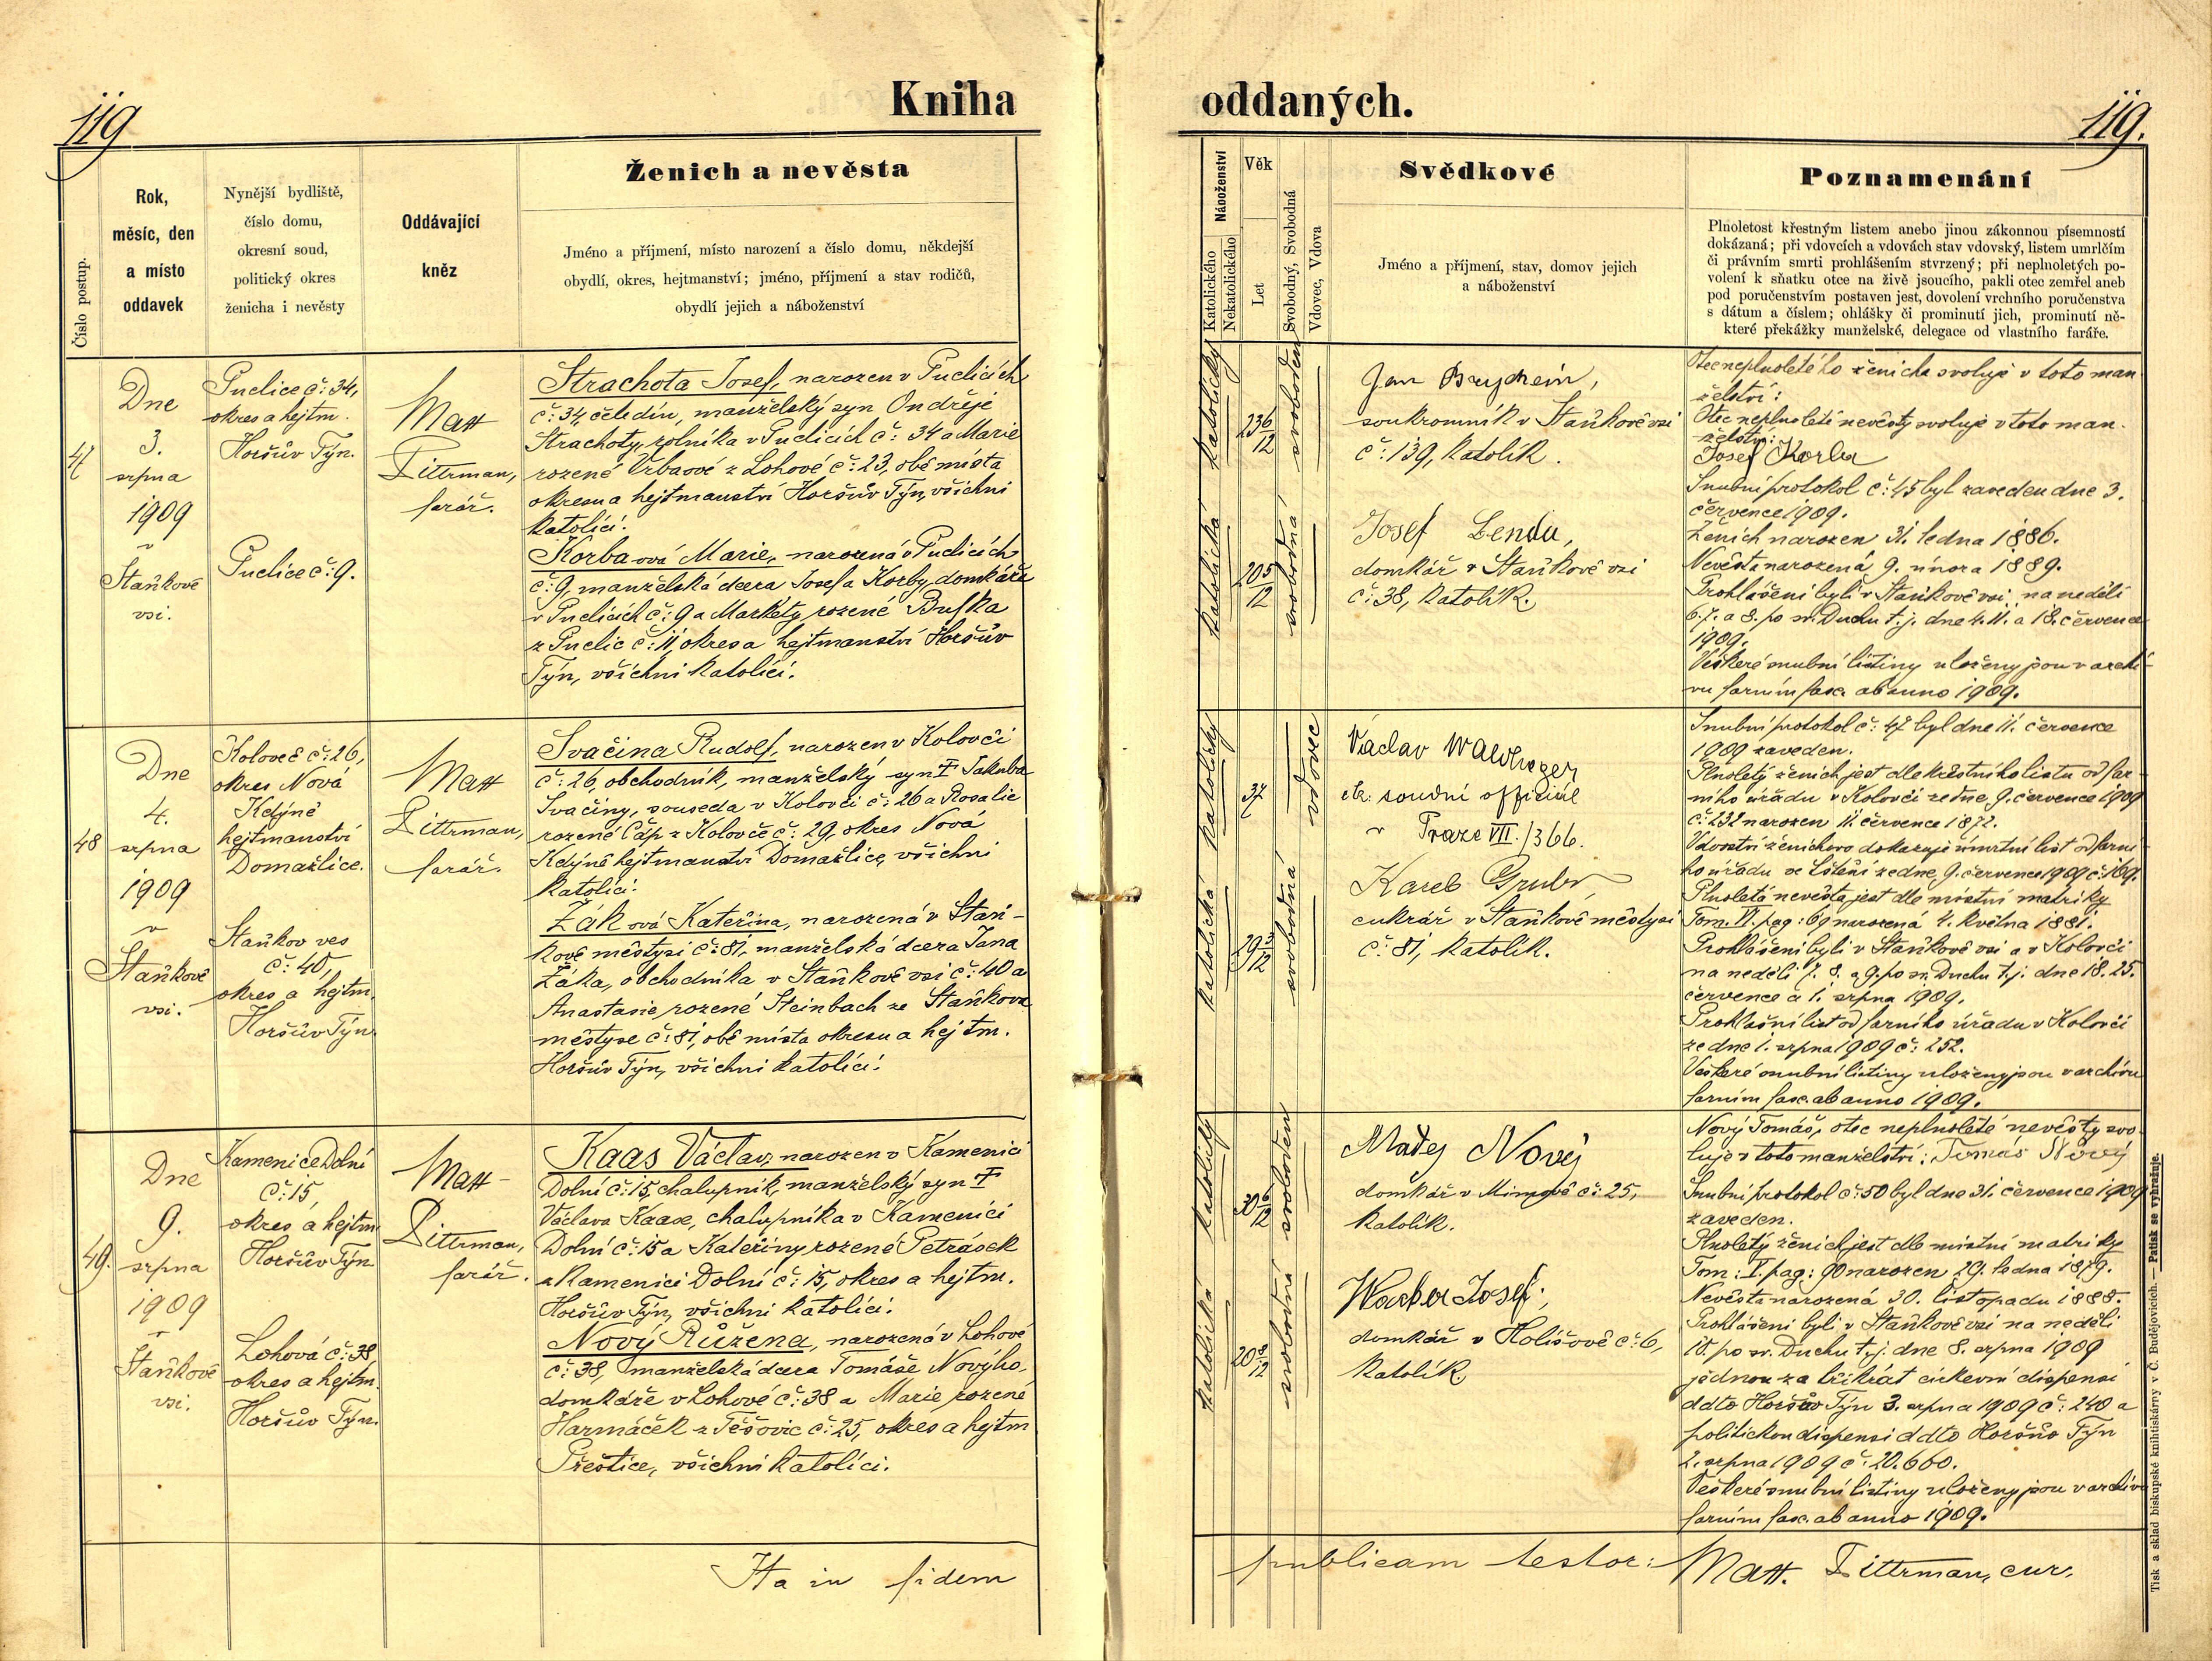 119
Kniha
oddaných.
119.
Číslo postup.
Rok,
měsíc, den
a místo
oddavek
Nynější bydliště,
číslo domu,
okresní soud,
politický okres
ženicha i nevěsty
Oddávající
kněz
Ženich a nevěsta
Jméno a příjmení, místo narození a číslo domu, někdejší
obydlí, okres, hejtmanství; jméno, příjmení a stav rodičů,
obydlí jejich a náboženství
Náboženství
Katolického
Nekatolického
Věk
Let
Svobodný, Svobodná
Vdovec, Vdova
Svědkové
Jméno a příjmení, stav, domov jejich
a náboženství
Poznamenání
Plnoletost křestným listem anebo jinou zákonnou písemností
dokázaná; při vdovcích a vdovách stav vdovský, listem umrlčím
či právním smrti prohlášením stvrzený; při neplnoletých po-
volení k sňatku otce na živě jsoucího, pakli otec zemřel aneb
pod poručenstvím postaven jest, dovolení vrchního poručenstva
s dátum a číslem; ohlášky či prominutí jich, prominutí ně-
které překážky manželské, delegace od vlastního faráře.
47
Dne
3.
srpna
1909
v
Staňkově
vsi.
Puclice č: 34,
okres a hejtm.
Horšův Týn.
Puclice č: 9.
Matt
Pittrman,
farář.
Strachota Josef, narozen v Puclicích
č: 34, čeledín, manželský syn Ondřeje
Strachoty, rolníka v Puclicích č: 34 a Marie
rozené Vrbaové z Lohové č: 23, obě místa
okresu a hejtmanství Horšův Týn, všichni
katolíci.
Korba ová Marie, narozená v Puclicích
č: 9, manželská dcera Josefa Korby, domkáře
v Puclicích č: 9 a Markéty rozené Bufka
z Puclic č: 11, okres a hejtmanství Horšův
Týn, všichni katolíci.
katolický
23 6/12
svoboden
katolická
20 5/12
svobodná
Jan
soukromník v Staňkově vsi
č: 139, katolík.
Josef Lenda,
domkář v Staňkově vsi
č: 38, katolík.
Otec neplnoletého ženicha svoluje v toto man-
želství:
Otec neplnoleté nevěsty svoluje v toto man-
želství:
Josef Korba
Snubní protokol č: 45 byl zaveden dne 3.
července 1909.
Ženich narozen 31. ledna 1886.
Nevěsta narozená 9. února 1889.
Prohlášeni byli v Staňkově vsi na neděli
6. 7. a 8. po sv. Duchu t. j. dne 4. 11. a 18. července
1909.
Veškeré snubní listiny uloženy jsou v archi-
vu farním fasc. ab anno 1909.
48
Dne
4.
srpna
1909
v
Staňkově
vsi.
Koloveč č: 26,
okres Nová
Kdýně
hejtmanství
Domažlice.
Staňkov ves
č: 40,
okres a hejtm.
Horšův Týn.
Matt
Pittrman,
farář.
Svačina Rudolf, narozen v Kolovči
č: 26, obchodník, manželský syn † Jakuba
Svačiny, souseda v Kolovči č: 26 a Rosalie
rozené Čáp z Kolovče č: 29, okres Nová
Kdýně hejtmanství Domažlice, všichni
katolíci.
Žák ová Kateřina, narozená v Staň-
kově městysi č: 81, manželská dcera Jana
Žáka, obchodníka v Staňkově vsi č: 40 a
Anastasie rozené Steinbach ze Staňkova
městyse č: 81, obě místa okresu a hejtm.
Horšův Týn, všichni katolíci.
katolický
37
vdovec
katolická
29 3/12
svobodná
Václav
soudní officiál
v Praze VII./366.
Karel Gruber
cukrář v Staňkově městysi
č: 81, katolík.
Snubní protokol č: 47 byl dne 11. července
1909 zaveden.
Plnoletý ženich jest dle křestního listu od far-
ního úřadu v Kolovči ze dne 9. července 1909
č: 232 narozen 11. července 1872.
Vdovství ženichovo dokazuje úmrtní list od farní-
ho úřadu ve Lštění ze dne 9. července 1909 č: 169.
Plnoletá nevěsta jest dle místní matriky
Tom. VI. pag: 69 narozená 4. května 1881.
Prohlášeni byli v Staňkově vsi a v Kolovči
na neděli 7. 8. a 9. po sv. Duchu t. j. dne 18. 25.
července a 1. srpna 1909.
Prohlašní list od farního úřadu v Kolovči
ze dne 1. srpna 1909 č: 252.
Veškeré snubní listiny uloženy jsou v archivu
farním fasc. ab anno 1909.
49.
Dne
9.
srpna
1909
v
Staňkově
vsi.
Kamenice Dolní
č: 15,
okres a hejtm.
Horšův Týn.
Lohová č: 38
okres a hejtm.
Horšův Týn.
Matt
Pittrman,
farář.
Kaas Václav, narozen v Kamenici
Dolní č: 15, chalupník, manželský syn †
Václava Kaase, chalupníka v Kamenici
Dolní č: 15 a Kateřiny rozené Petrásek
z Kamenici Dolní č: 15, okres a hejtm.
Horšův Týn, všichni katolíci.
Nový Růžena, narozená v Lohové
č: 38, manželská dcera Tomáše Nového,
domkáře v Lohové č: 38 a Marie rozené
Harmáček z Těšovic č: 25, okres a hejtm
Přeštice, všichni katolíci.
katolický
30 6/12
svoboden
katolická
20 8/12
svobodná
Matěj Nový
domkář v Mimově č: 25,
katolík.
Wacber Josef,
domkář v Holišově č: 6,
katolík.
Nový Tomáš, otec neplnoleté nevěsty svo-
luje v toto manželství: Tomáš Nový
Snubní protokol č: 50 byl dne 31. července 1909
zaveden.
Plnoletý ženich jest dle místní matriky
Tom: I. pag: 90 narozen 29. ledna 1879.
Nevěsta narozená 30. listopadu 1888.
Prohlášeni byli v Staňkově vsi na neděli
10. po sv. Duchu t. j. dne 8. srpna 1909
jednou za třikrát církevní dispensí
ddto Horšův Týn 3. srpna 1909 č: 240 a
politickou dispensí ddto Horšův Týn
2. srpna 1909 č: 20.660.
Veškeré snubní listiny uloženy jsou v archivu
farním fasc. ab anno 1909.
Ita in fidem
publicam testor:
Matt. Pittrman, cur.
Tisk a sklad biskupské knihtiskárny v Č. Budějovicích. — Patisk se vyhražuje.